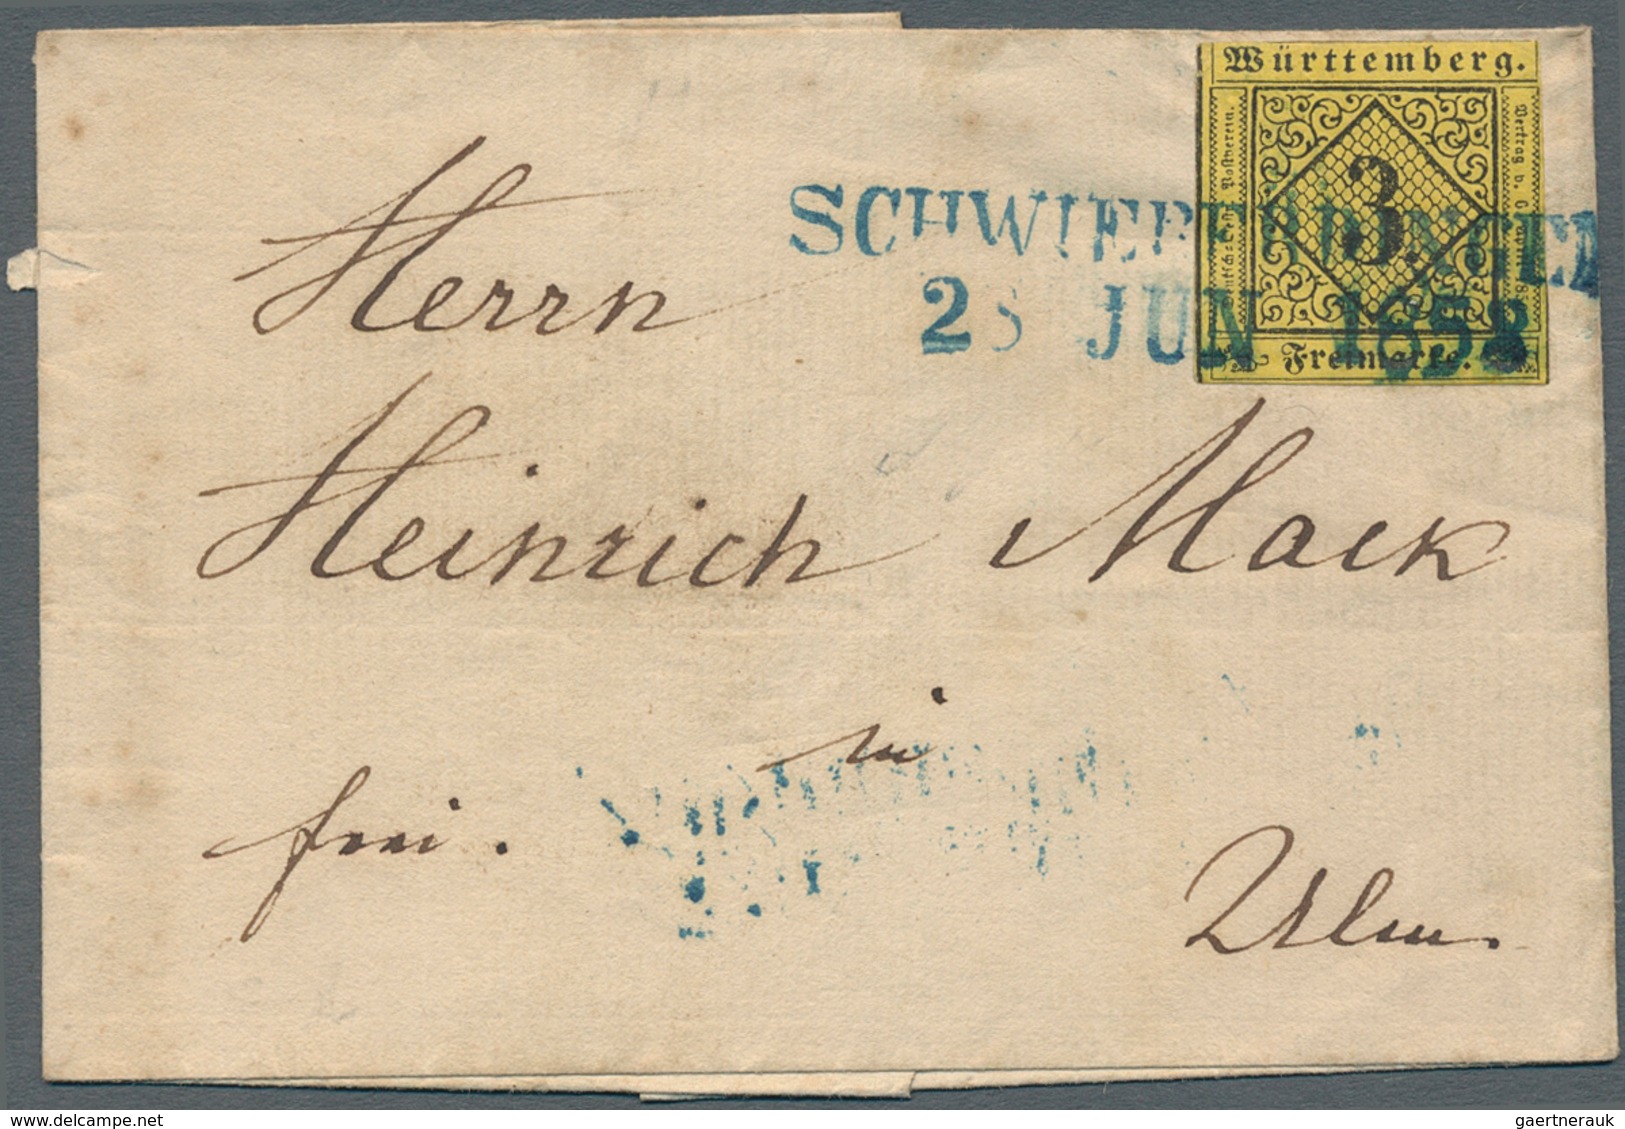 Württemberg.
Deutsch-Östr. Postverein.
3
Freimarke.
SCHWIEBERDINGEN
28 JUN 1852
Herrn
Heinrich Mack
in
frei.
Ulm.
delcampe.net
gaertnerauk